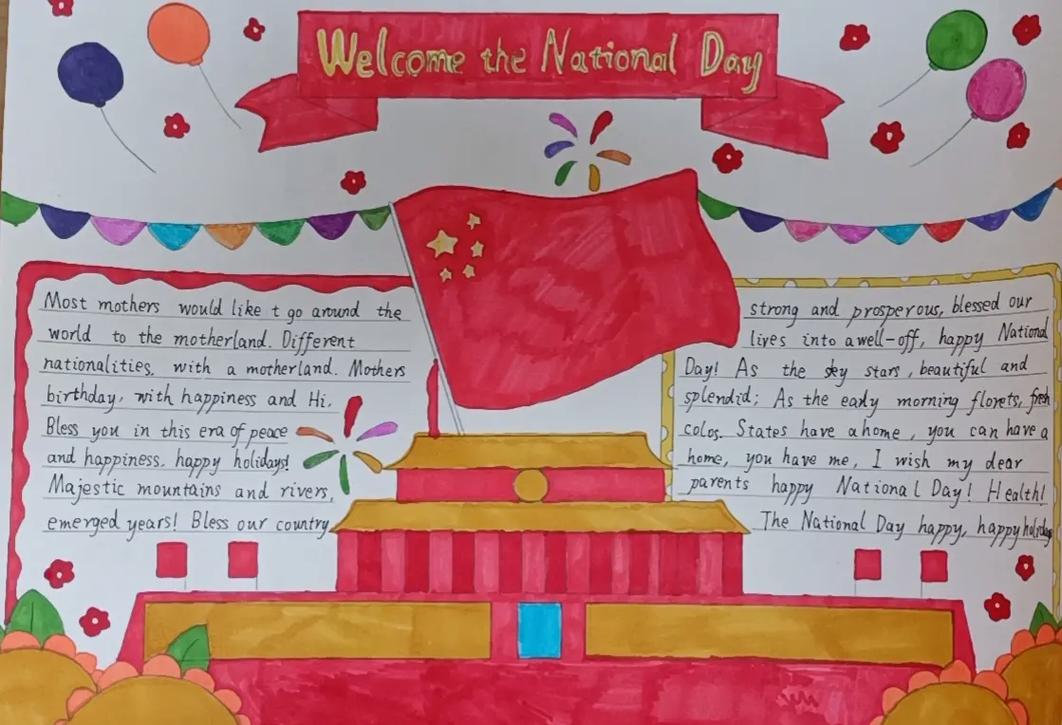 Welcome the National Day
Most mothers would like t go around the
world to the motherland. Different
nationalities, with a motherland. Mothers
birthday, with happiness and Hi,
Bless you in this era of peace
and happiness, happy holidays!
Majestic mountains and rivers,
emerged years! Bless our country
strong and prosperous, blessed our
lives into a well-off, happy National
Day! As the sky stars, beautiful and
splendid; As the early morning florets, fresh
colos. States have a home, you can have a
home, you have me, I wish my dear
parents happy National Day! Health!
The National Day happy, happy holiday